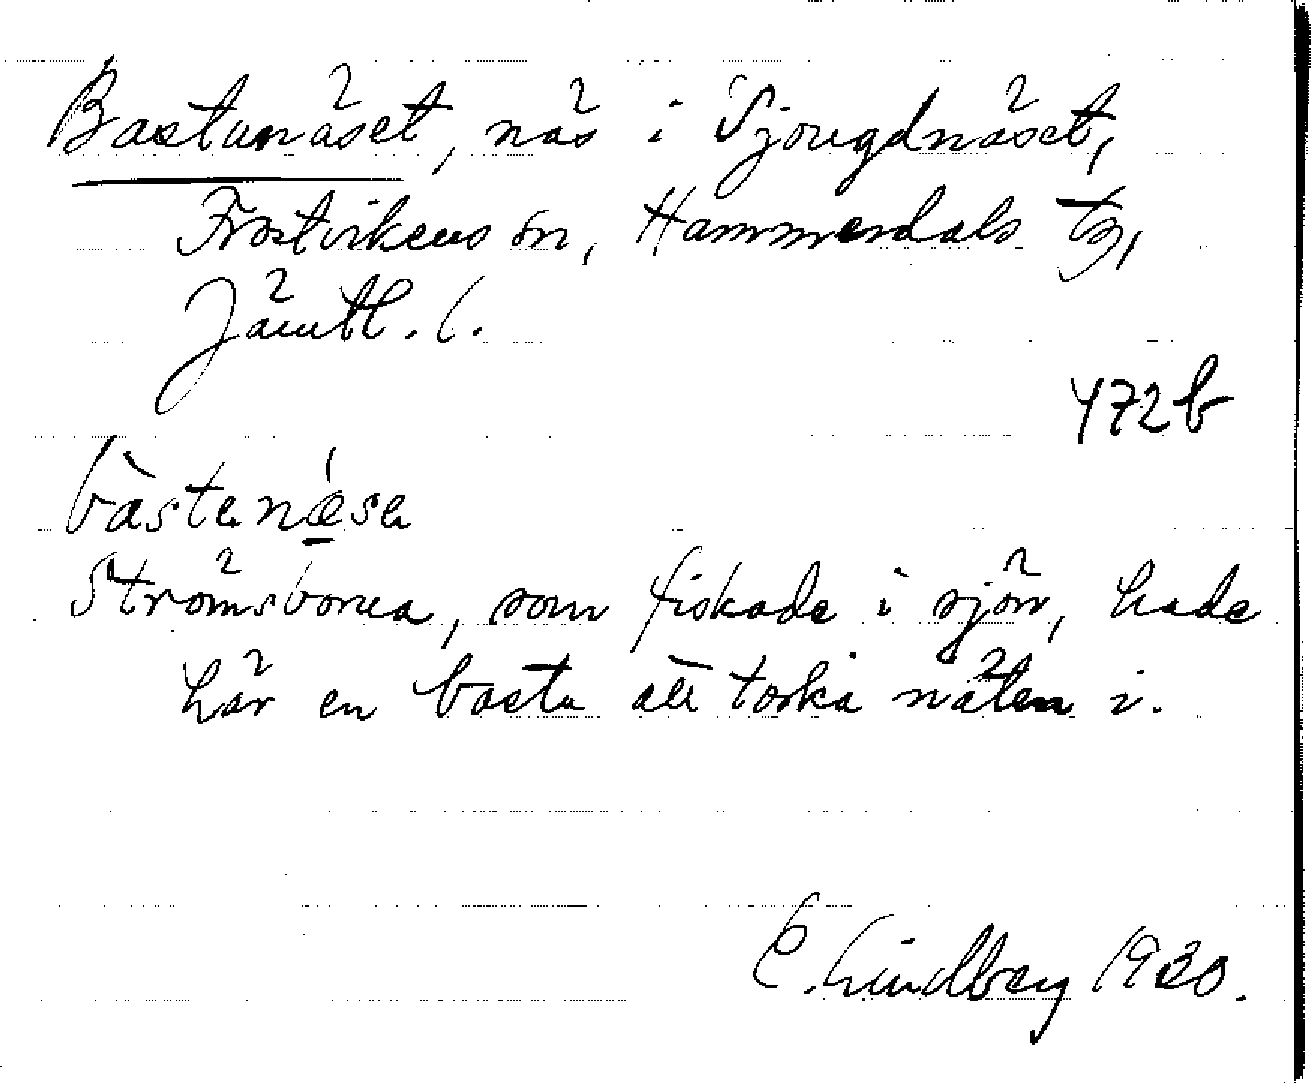 Bastunäset, näs i Sjougdnäset,
Frostvikens sn, Hammerdals tg,
Jämtl. l.
472b
bàstunǽsa
Strömsborna, som fiskade i sjön, hade
här en bastu att torka näten i.
E. Lindberg 1930.